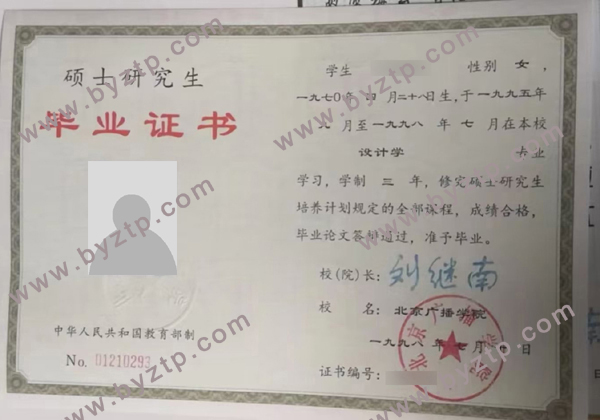 硕士研究生
毕业证书
中华人民共和国教育部制
No. 01210293
学生 性别 女，
一九七〇年 四 月二十八日生，于一九九五年
九 月至一九九八 年 七 月在本校
设计学 专业
学习，学制 三 年，修完硕士研究生
培养计划规定的全部课程，成绩合格，
毕业论文答辩通过，准予毕业。
校(院)长：刘继南
校 名：北京广播学院
一九九八 年 七 月 日
证书编号：
www.byztp.com
www.byztp.com
www.byztp.com
www.byztp.com
www.byztp.com